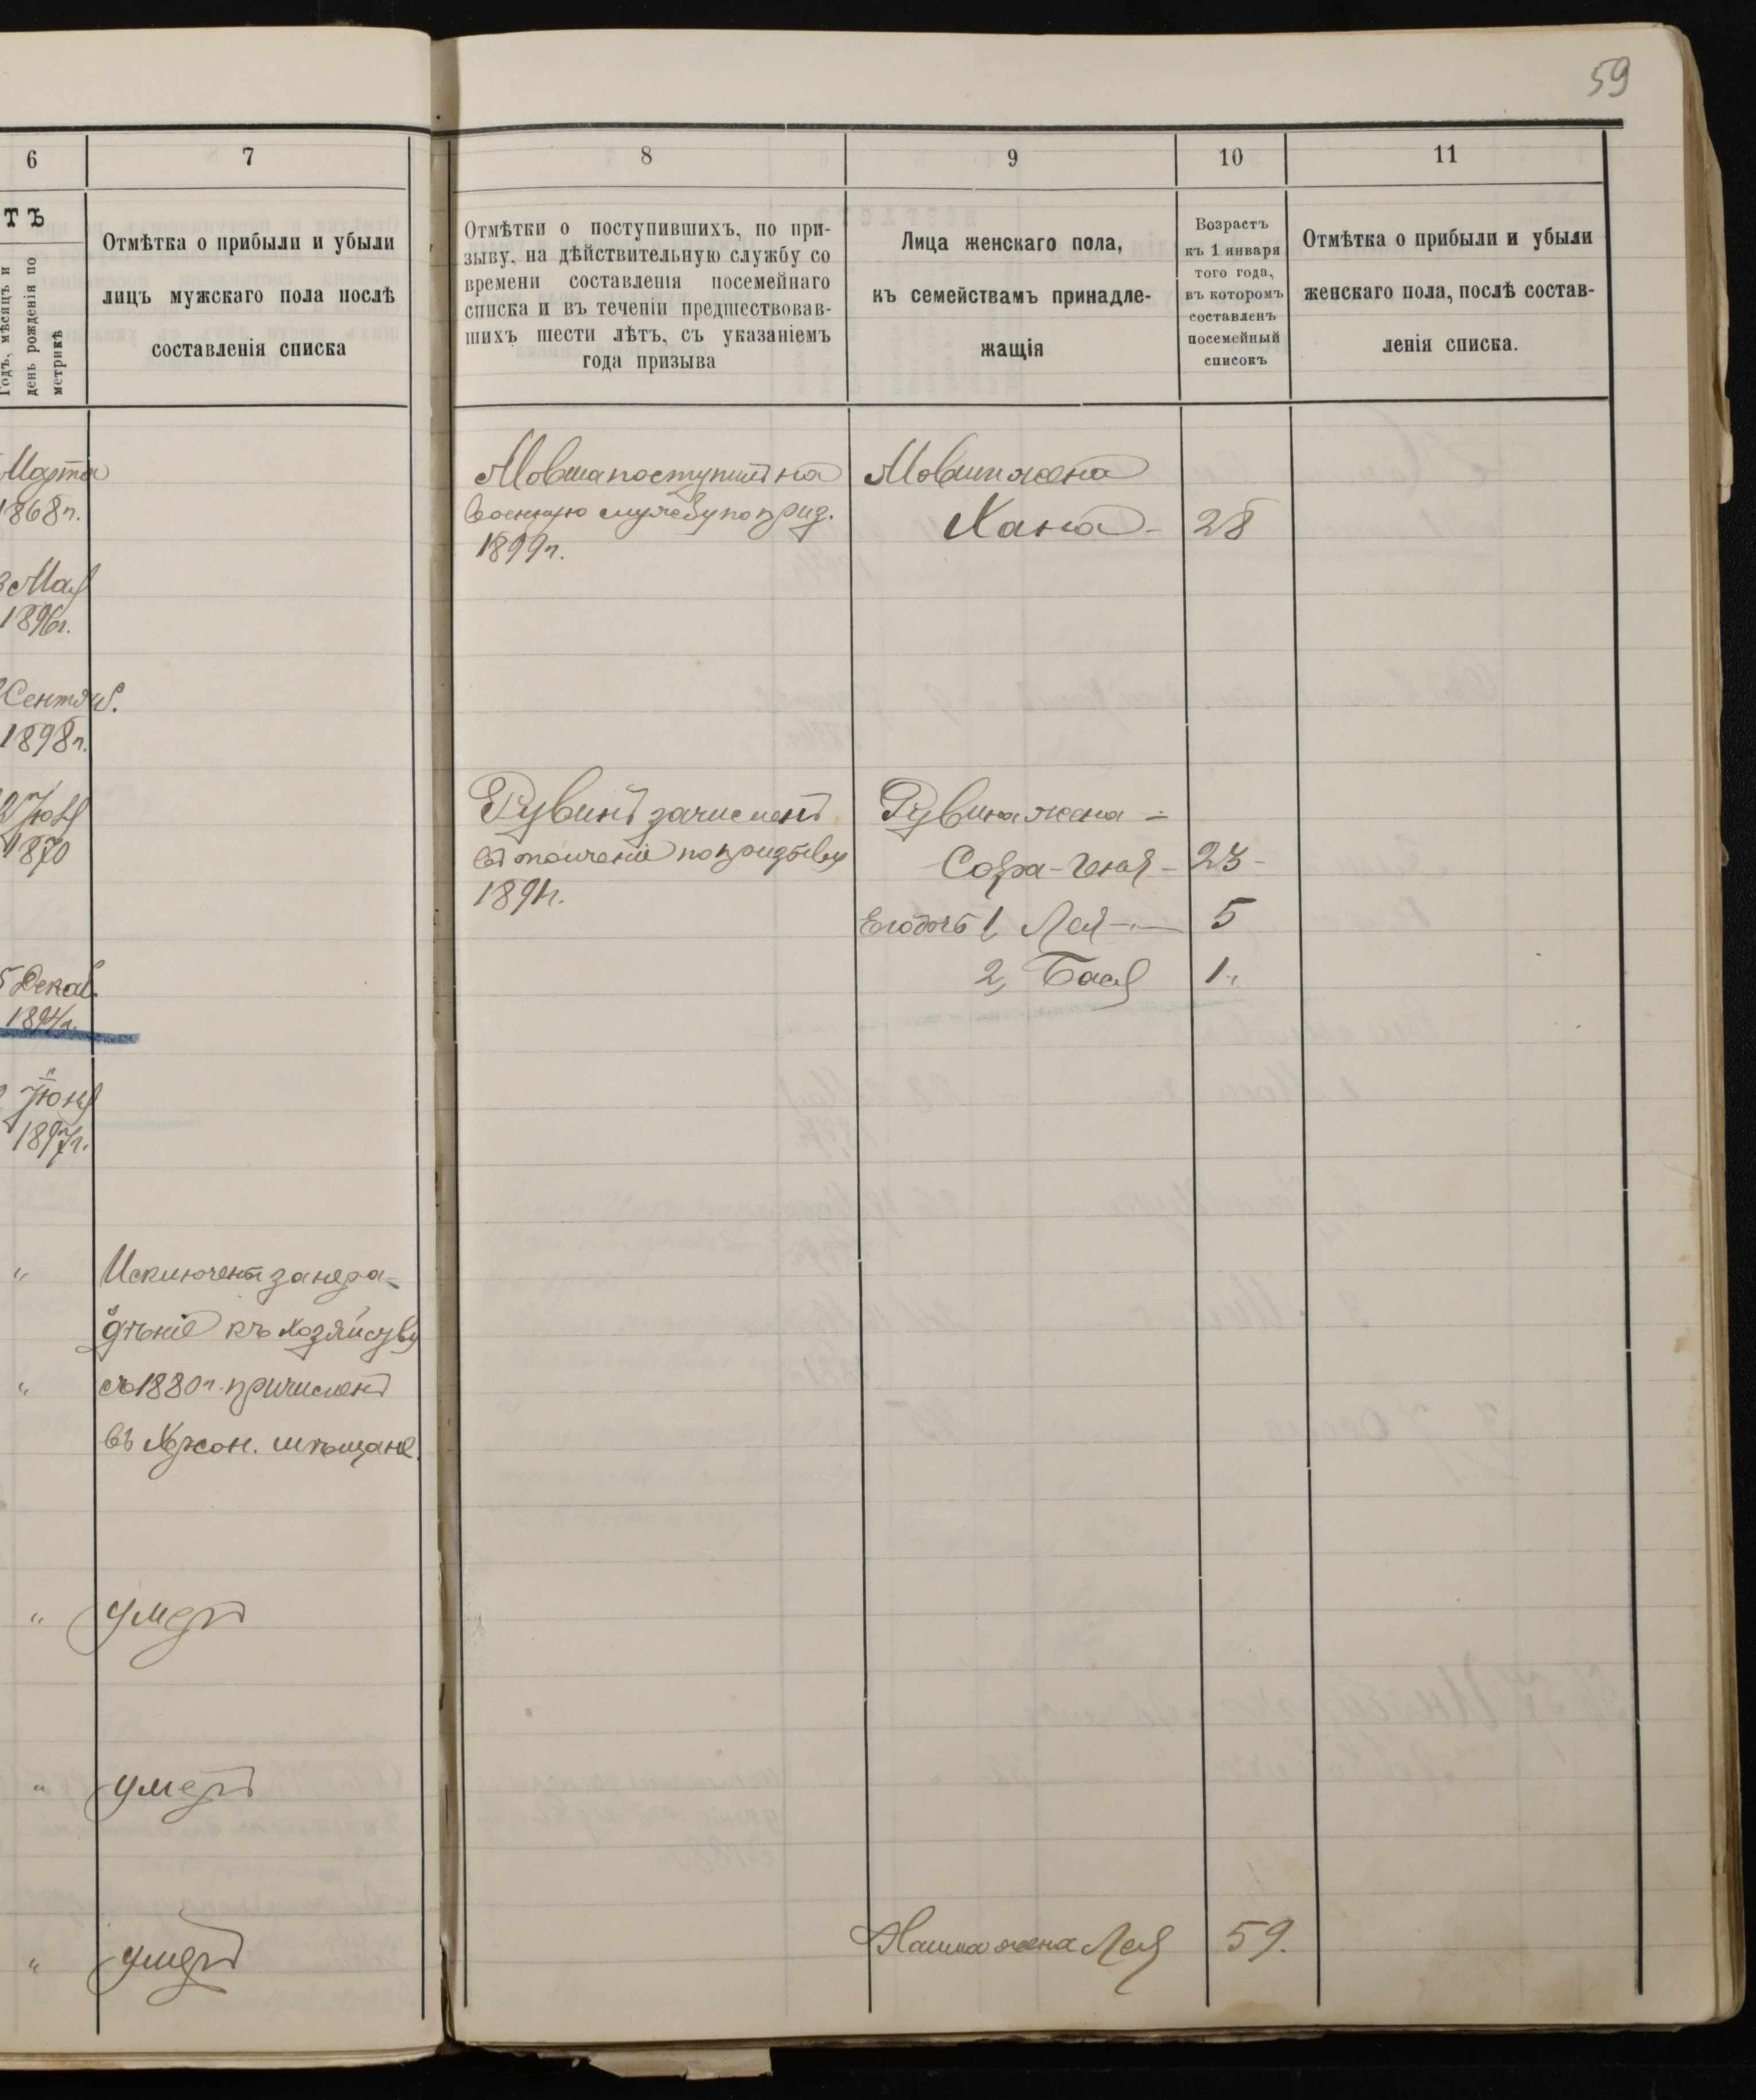 59
6
7
8
9
10
11
ТЪ
Годъ, мѣсяцъ и
день рожденія по
метрикѣ
Отмѣтка о прибыли и убыли
лицъ мужскаго пола послѣ
составленія списка
Отмѣтки о поступившихъ, по при-
зыву, на дѣйствительную службу со
времени составленія посемейнаго
списка и въ теченіи предшествовав-
шихъ шести лѣтъ, съ указаніемъ
года призыва
Лица женскаго пола,
къ семействамъ принадле-
жащія
Возрастъ
къ 1 января
того года,
въ которомъ
составленъ
посемейный
списокъ
Отмѣтка о прибыли и убыли
женскаго пола, послѣ состав-
ленія списка.
Марта
1868г.
Мовша поступилъ на
военную службу по приз.
1899г.
Мовши жена
Хана - 28
Мая
1896г.
Сентяб.
1898г.
Юля
1870
Рувинъ зачисленъ
въ ополченіе по призыву
1891г.
Рувина жена -
Сора-Геня - 23 -
Его дочь 1, Лея 5
2, Бася 1
5 Декаб.
1894г.
Юня
1897г.
" Исключенъ за нера-
дѣніе къ хозяйству
" съ 1880г. причисленъ
въ Херсон. мѣщане.
" умеръ
" умеръ
" умеръ
жена Лея 59.